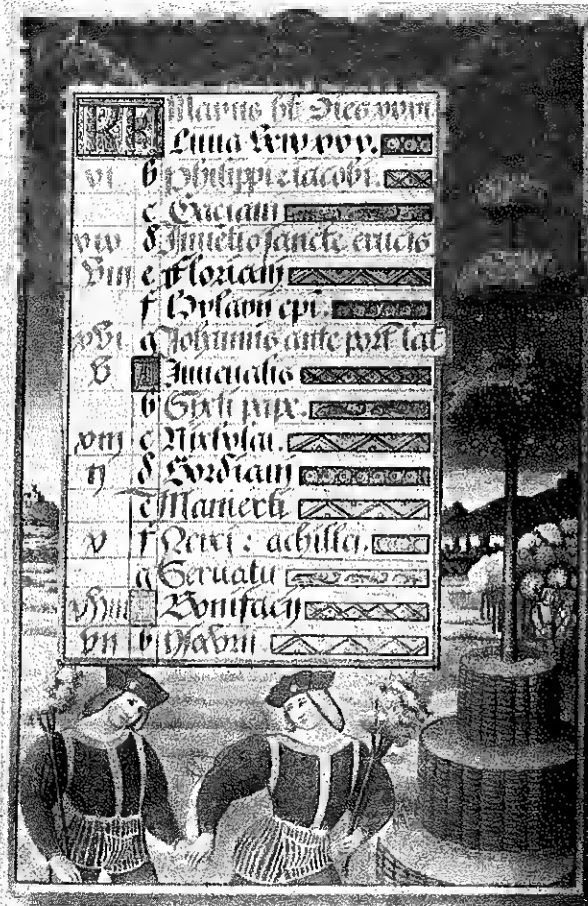 KL Mayus hb Dies xxxi
Luna xxx.
vi b Philippi z iacobi.
c
xix d Inuētio sancte crucis
viii e Floriani
f epi.
xvi g Johannis ante port lat
v A Iuuenalis
b Sixti pape.
xiii c Nicholai.
ii d Gordiani
e Mamerti
x f Nerei : achillei.
g Seruatii
xviii A Bonifacij
vii b Ysidori